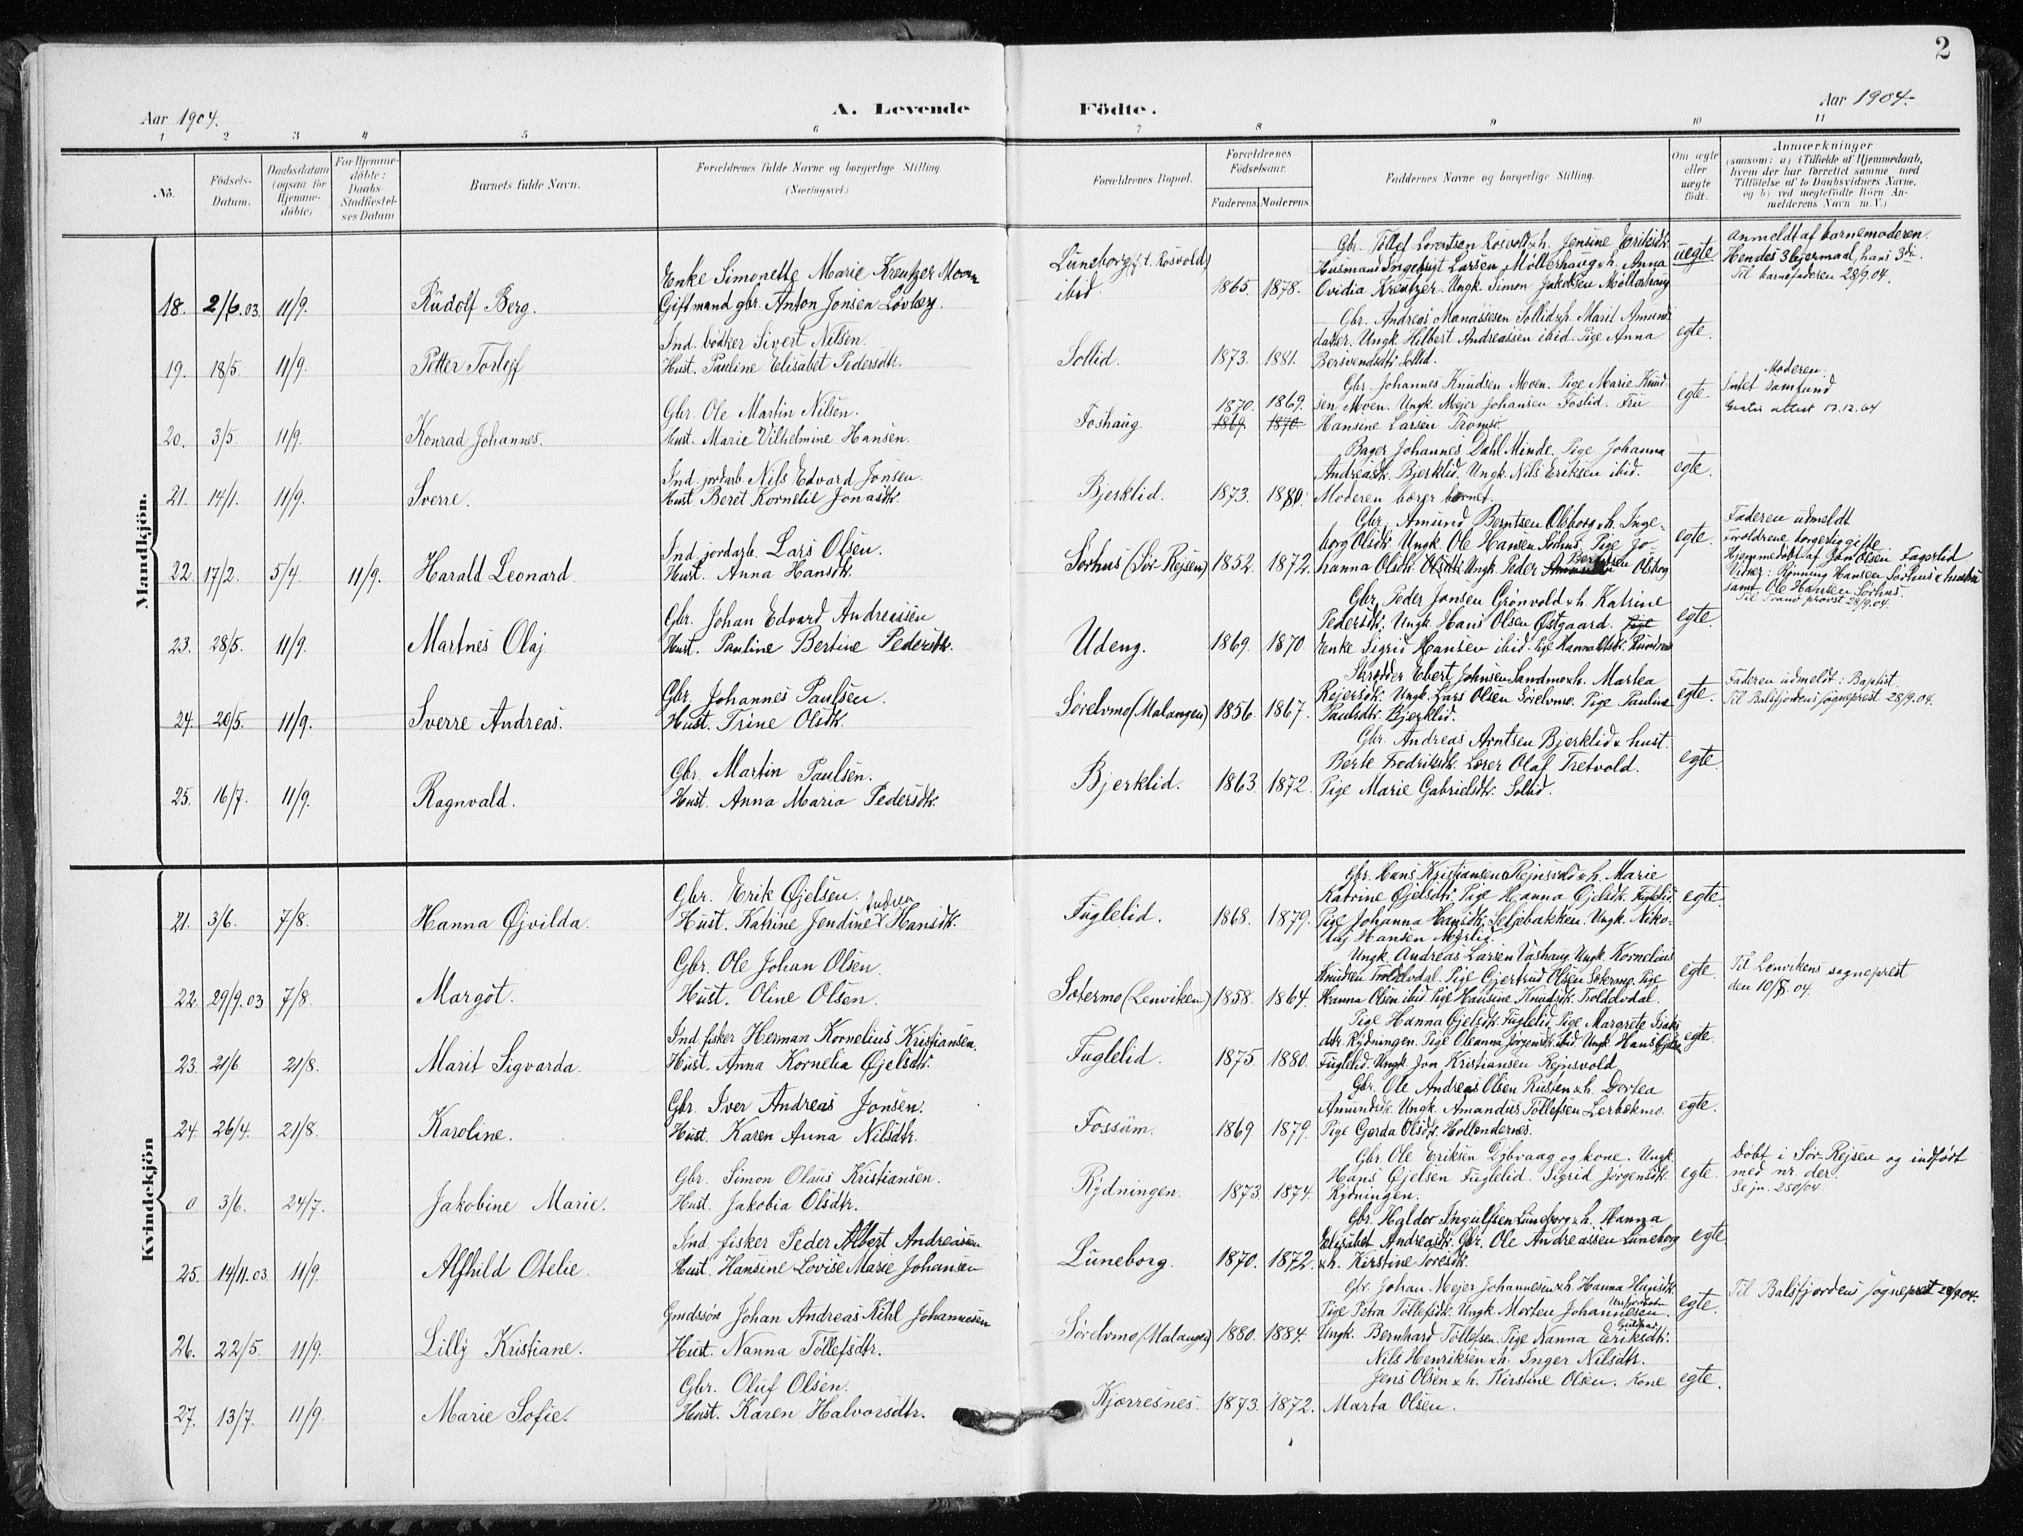 2
Aar 1904.
A. Levende Födte.
Aar 1904.
1 2 3 4 5 6 7 8 9 10 11
No.
Födsels-Datum.
Daabsdatum (ogsaa for Hjemme-döbte)
For Hjemme-döbte: Daabs-Stadfæstel-ses Datum
Barnets fulde Navn.
Forældrenes fulde Navne og borgerlige Stilling (Næringsvei.)
Forældrenes Bopæl.
Forældrenes Födselsaar.
Faderens Moderens
Faddernes Navne og borgerlige Stilling.
Om ægte eller uægte födt.
Anmærkninger
(saasom: a) i Tilfælde af Hjemmedaab, hvem der har forrettet samme, med Tilföielse af to Daabsvidners Navne, og b) ved uægtefödte Börn An-melderens Navn m. V.)
Mandkjön.
Gbr. Tollef Lorentsen Rosvold & h. Jensine Eriksdtr.
Enke Simonette Marie Kreutzer Moen
Lüneborg (f. t. Rosvold)
Husmand Ingebrigt Larsen Møllerhaug & h. Anna
uegte
Anmeldt af barnemoderen.
Hendes 3 lejermaal, hans 3die
18. 2/6.03 11/9. Rüdolf Berg. Gift mand gbr. Anton Jonsen Løvberg. ibid. 1865. 1878. Ovidia Kreutzer. Ungk. Simon Jakobsen Møllerhaug
Til barnefaderen 28/9.04.
Gbr. Andreas Manassesen Sollid & h. Marit Amund
Ind. bødker Sivert Nilsen.
datter. Ungk. Hilbert Andreassen ibid. Pige Anna
egte.
19. 18/5. 11/9. Petter Torleif Hust. Pauline Elisabet Pedersdtr. Sollid. 1873. 1881. Bersvendsdtr. Sollid.
Gbr. Johannes Knudsen Moen. Pige Marie Knud-
Moderen:
Gbr. Ole Martin Nilsen.
1870. 1869. sen Moen. Ungk. Mejer Johansen Foslid. Fru
egte.
Intet samfund
20. 3/5. 11/9. Konrad Johannes. Hust. Marie Vilhelmine Hansen. Foshaug. 1869 1870 Hansine Larsen Tromsø.
Gratis attest 17.12.64
Bager Johannes Dahl Minde. Pige Johanna
Ind. jordarb. Nils Edvard Jonsen.
Andreasdtr. Bjerklid. Ungk. Nils Eriksen ibid.
egte.
21. 14/1. 11/9. Sverre. Hust. Beret Kornelie Jonasdtr. Bjerklid. 1873. 1880. Moderen bærer barnet.
Gbr. Amund Berntsen Olsborg & h. Inge-
Faderen udmeldt
Ind. jordarb. Lars Olsen.
borg Olsdtr. Ungk. Ole Hansen Sørhus. Pige Jo-
egte.
Foroldrene borgerlig gifte
22. 17/2. 5/4. 11/9. Harald Leonard. Hust. Anna Hansdtr. Sørhus (Sör-Rejsen) 1852. 1872. hanna Olsdtr. Ungk. Peder Berntsen Olsborg
Hjemmedøbt af Jon Olsen Fagerlid
Vidner: Rønning Hansen Sørhus & hustru
samt Ole Hansen Sørhus.
Til Tranø provst 28/9.04.
Gbr. Peder Jonsen Grønvold & h. Katrine
Gbr. Johan Edvard Andreassen
Pedersdtr. Ungk. Hans Olsen Østgaard.
egte.
23. 28/5. 11/9. Martnes Olaj Hust. Pauline Bertine Pedersdtr. Udeng. 1869. 1870. Enke Sigrid Hansen ibid. Pige Hanna Olsdtr.
Skrædder Ebert Johnsen Sandmo & h. Martea
Gbr. Johannes Paulsen.
Rejersdtr. Ungk. Lars Olsen Sørelvmo. Pige Pauline
egte.
Faderen udmeldt: Baptist
24. 20/5. 11/9. Sverre Andreas. Hust. Trine Olsdtr. Sørelvmo (Malangen) 1856 1867. Paulsdtr. Bjerklid.
Til Balsfjordens sogneprest 28/9.04.
Gbr. Andreas Arntsen Bjerklid & hust.
Gbr. Martin Paulsen.
Berte Fredriksdtr. Lærer Olaf Tretvold.
egte.
25. 16/7. 11/9. Ragnvald. Hust. Anna Maria Pedersdtr. Bjerklid. 1863. 1872. Pige Marie Gabrielsdtr. Sollid.
Kvindekjön
Gbr. Hans Kristiansen Rejnsvold & h. Marie
Gbr. Erik Øjelsen.
Katrine Øjelsdtr. Pige Hanna Øjelsdtr. Fuglelid.
egte.
21. 3/6. 7/8. Hanna Øjvilda. Hust. Katrine Jendine Andrea Hansdtr. Fuglelid. 1868. 1879. Pige Johanna Hansdtr. Seljebakken. Ungk. Niko-
laj Hansen Myrlid.
Gbr. Ole Johan Olsen.
Ungk. Andreas Larsen Vashaug Ungk. Kornelius
Knudsen Troldvdal. Pige Gjertrud Olsen Sætermo. Pige
egte.
Til Lenvikens sogneprest
22. 29/9.03 7/8. Margot. Hust. Oline Olsen. Sætermo (Lenviken) 1858. 1864. Hanna Olsen ibid. Pige Hansine Knudsdtr. Troldvdal.
den 10/8.04.
Pige Hanna Øjelsdtr. Fuglelid. Pige Margrete Isaks
Ind. fisker Herman Kornelius Kristiansen.
dtr. Rydningen. Pige Oleanna Jørgensdtr. ibid. Ungk. Hans Øjelsen
egte.
23. 21/6 21/8. Marit Sigvarda. Hust. Anna Kornelia Øjelsdtr. Fuglelid. 1875 1880. Fuglelid. Ungk. Jon Kristiansen Rejnsvold
Gbr. Ole Andreas Olsen Rusten & h. Dortea
Gbr. Iver Andreas Jonsen.
Amundsdtr. Ungk. Amandus Tollefsen Lerbækmo.
egte.
24. 26/4. 21/8. Karoline. Hust. Karen Anna Nilsdtr. Fossum. 1869 1879. Pige Gerda Olsdtr. Hollendernes.
Gbr. Ole Eriksen Dybvaag og kone. Ungk.
Døbt i Sör-Rejsen og indført
Gbr. Simon Olaus Kristiansen.
Hans Øjelsen Fuglelid. Sigrid Jørgensdtr.
egte.
med nr. der.
0. 3/6. 24/7. Jakobine Marie. Hust. Jakobia Olsdtr. Rydningen. 1873 1874. Rydningen.
Se jn. 250/04.
Gbr. Haldor Ingulfsen Lüneborg & h. Hanna
Ind. fisker Peder Albert Andreasen
Elisabet Andreasdtr. Gbr. Ole Andreassen Luneborg
egte
25. 14/11.03. 11/9. Alfhild Otelie. Hust. Hansine Lovise Marie Johansen Lüneborg. 1870. 1872. & h. Kirstine Toresdtr.
Gbr. Johan Mejer Johannesen & h. Hanna Hansdtr.
Til Balsfjordens sogneprest 28/9.04.
Gmdssøn Johan Andreas Kihl Johannesen
Pige Petra Tollefsdtr. Ungk. Morten Johannesen
egte.
26. 22/5. 11/9. Lilly Kristiane. Hust. Nanna Tollefsdtr. Sørelvmo (Malangen) 1880. 1884. Ungk. Bernhard Tollefsen. Pige Nanna Eriksdtr.
Nils Henriksen & h. Inger Nilsdtr.
Gbr. Oluf Olsen.
Jens Olsen & h. Kirstine Olsen. Kone
egte.
27. 13/7. 11/9. Marie Sofie. Hust. Karen Halvorsdtr. Kjærresnes. 1873. 1872. Marta Olsen.